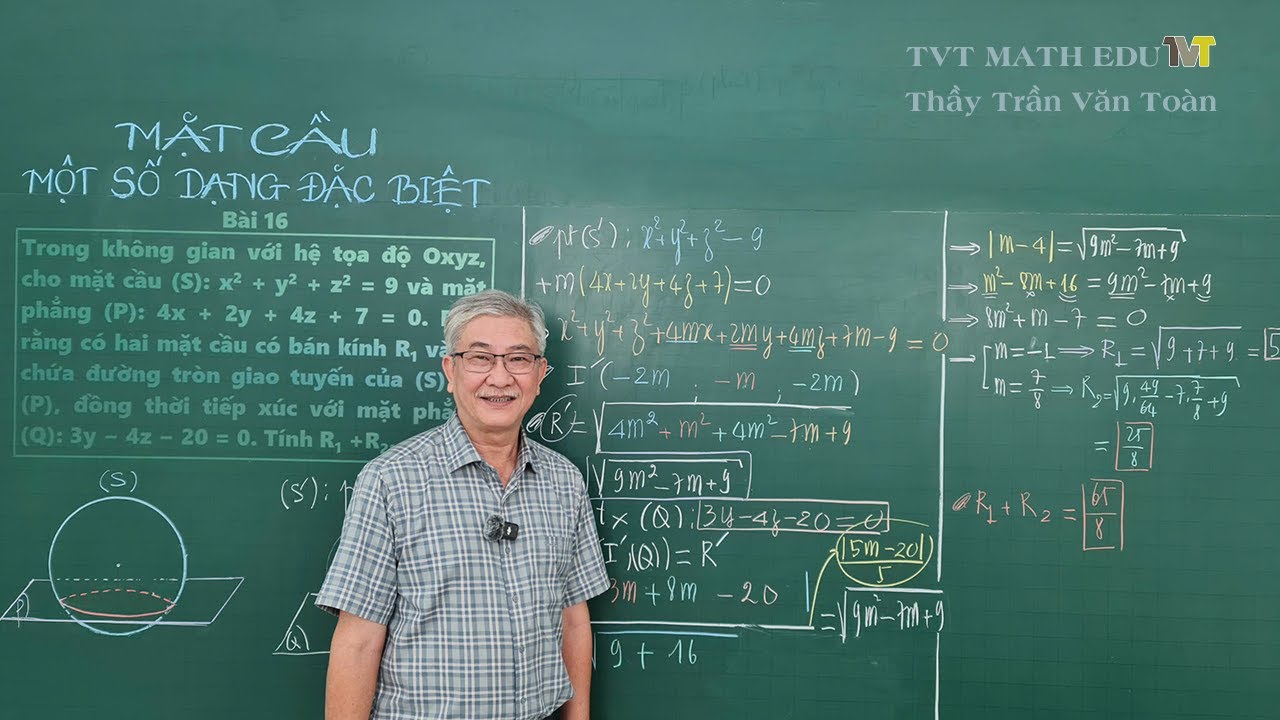 TVT MATH EDU TVT
Thầy Trần Văn Toàn
MẶT CẦU
MỘT SỐ DẠNG ĐẶC BIỆT
Bài 16
Trong không gian với hệ tọa độ Oxyz,
cho mặt cầu (S): x² + y² + z² = 9 và mặt
phẳng (P): 4x + 2y + 4z + 7 = 0.
rằng có hai mặt cầu có bán kính R₁
chứa đường tròn giao tuyến của (S)
(P), đồng thời tiếp xúc với mặt
(Q): 3y − 4z − 20 = 0. Tính R₁ +R₂
(S)
P
(S'):
Q
pt(S'): x²+y²+z²−9
+m(4x+2y+4z+7)=0
x²+y²+z²+4mx+2my+4mz+7m−9=0
I'(−2m, −m, −2m)
R'=√4m²+m²+4m²−7m+9
√9m²−7m+9
tx (Q): 3y−4z−20=0
I',(Q))=R'
3m+8m −20|
√9+16
|5m−20|/5
=√9m²−7m+9
⇒ |m−4|=√9m²−7m+9
⇒ m²−8m+16=9m²−7m+9
⇒ 8m²+m−7=0
m=−1 ⇒ R₁=√9+7+9=5
m=7/8 ⇒ R₂=√9.49/64−7.7/8+9
=25/8
R₁+R₂=65/8